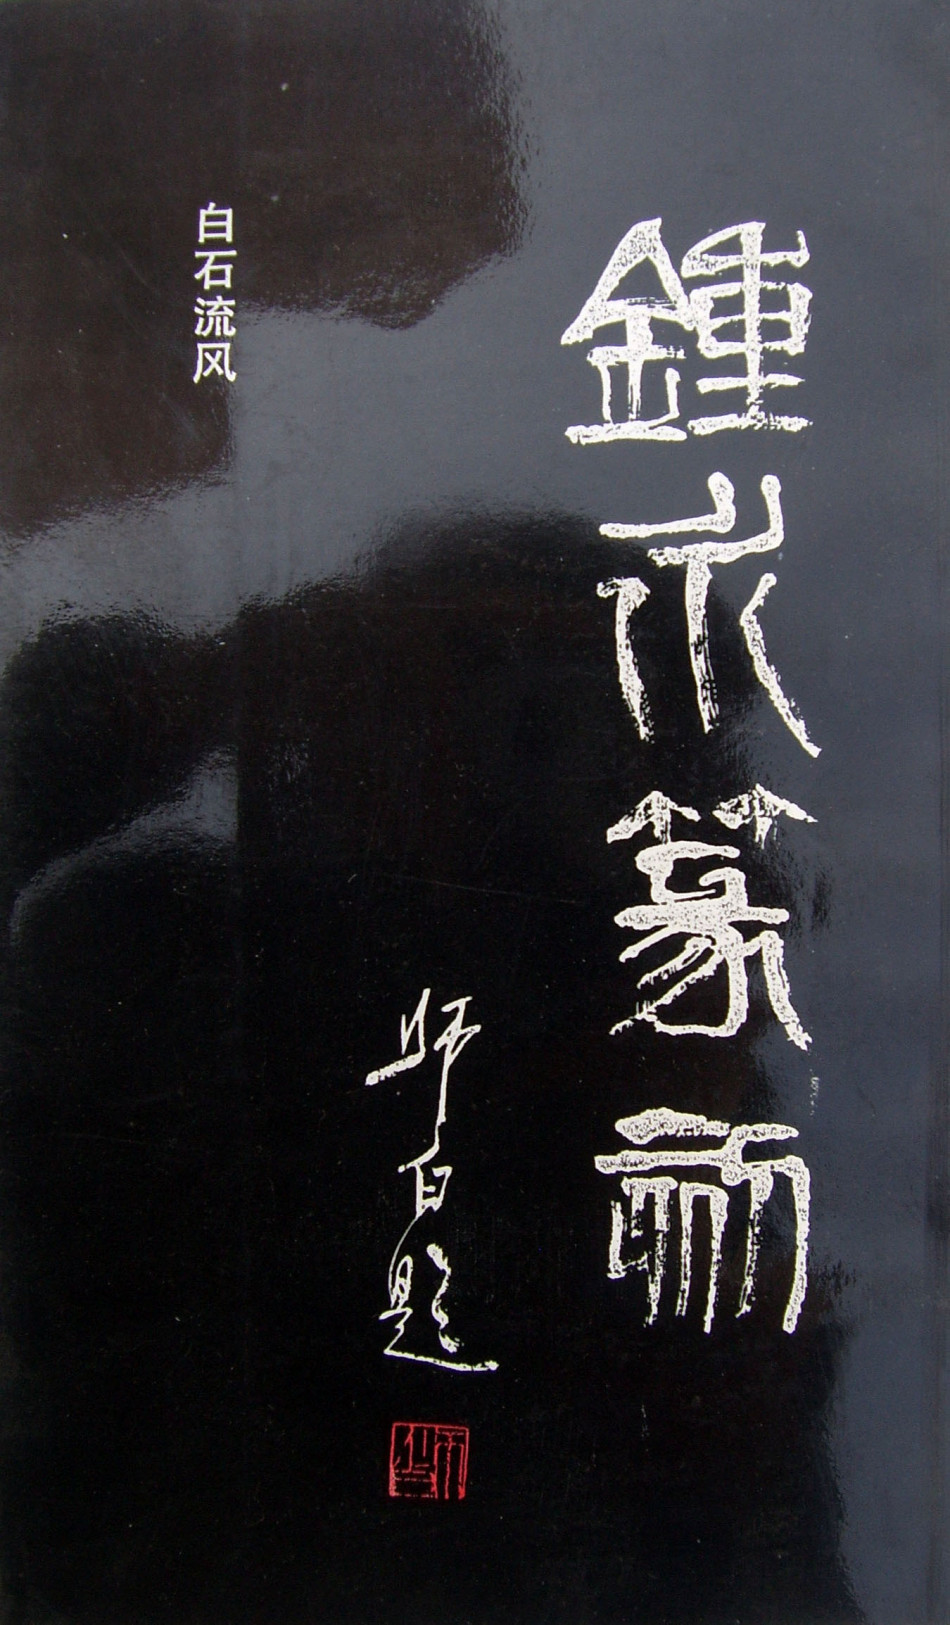 鍾篆刻
师白题
白石流风